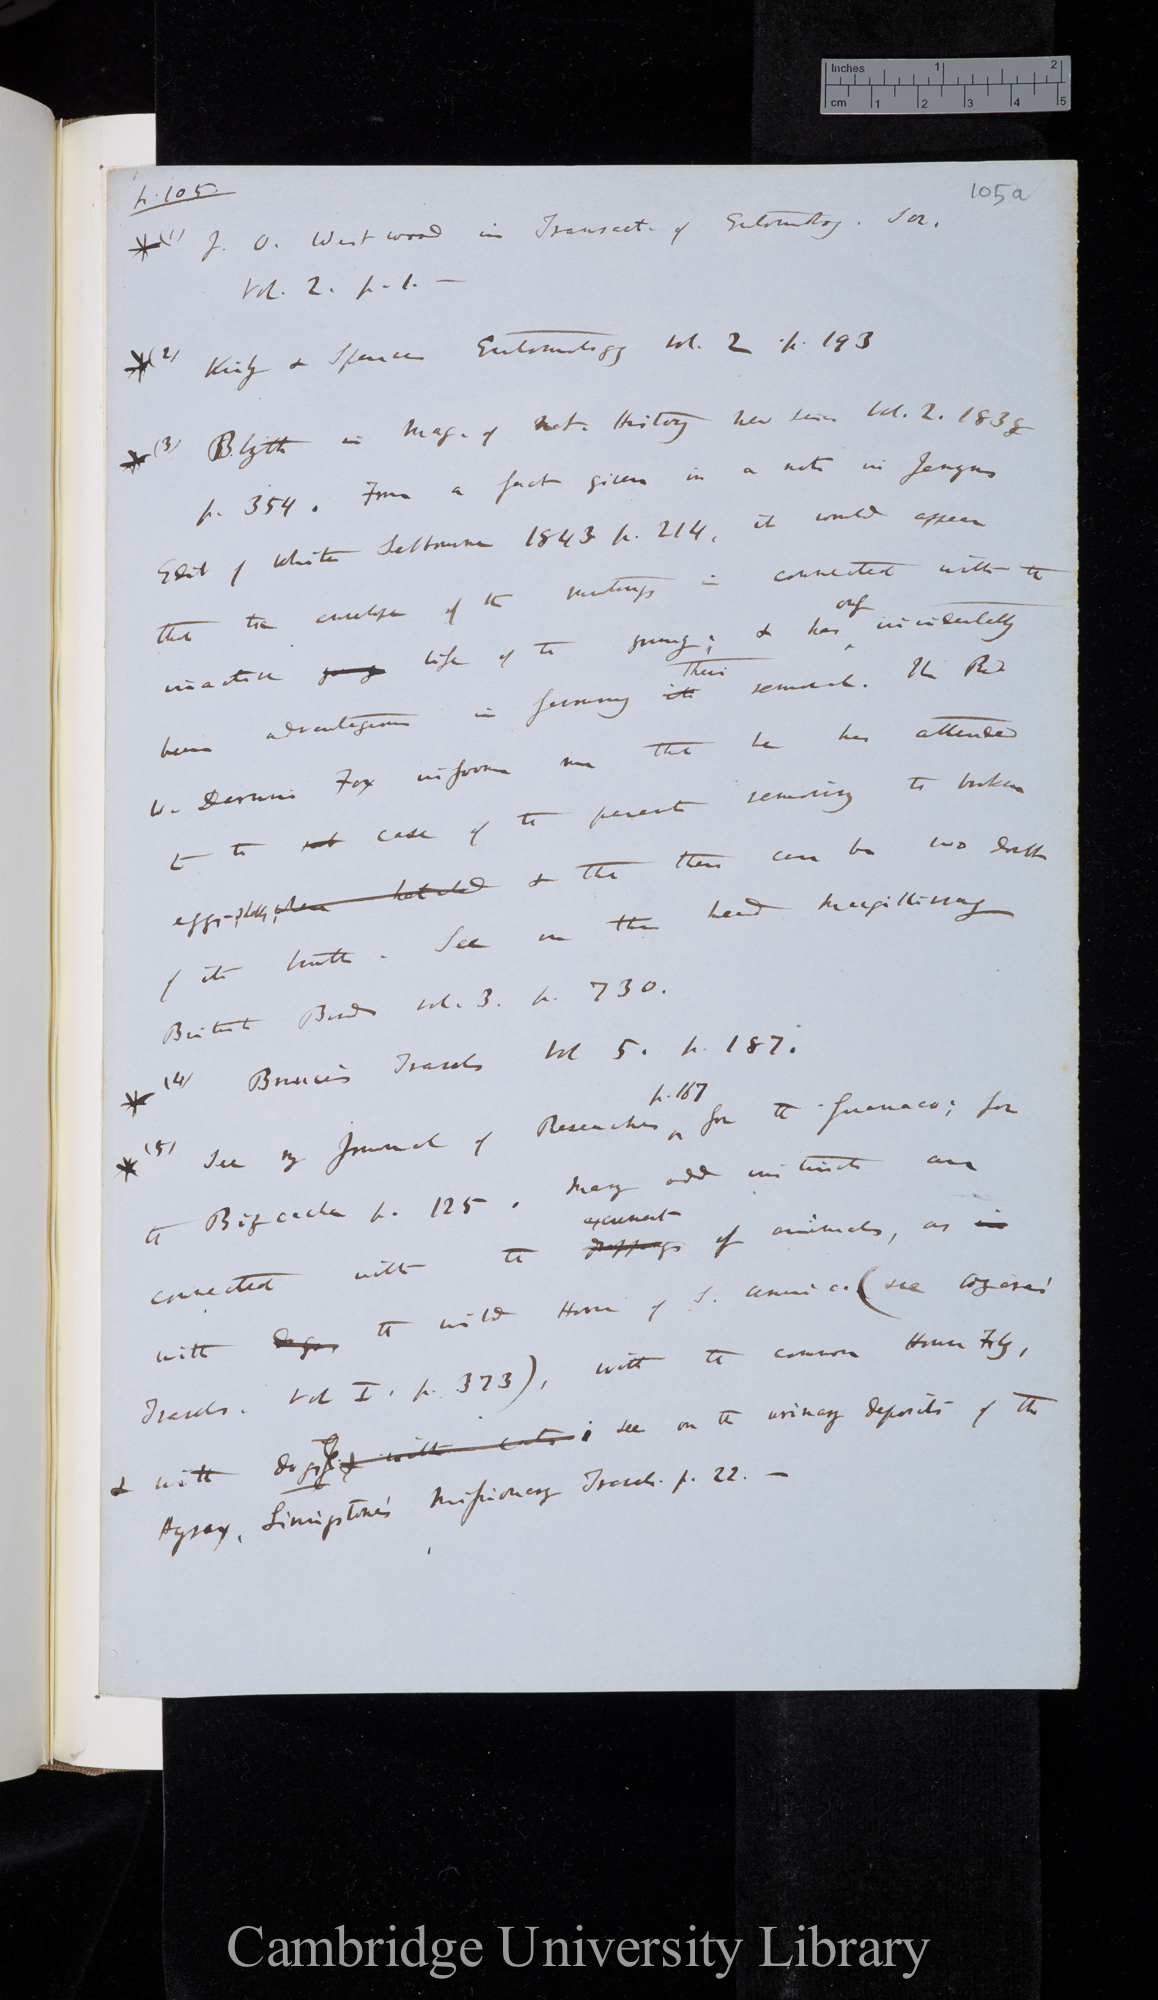 p. 105.
105a
*(1) J. O. Westwood in Transact. of Entomolog. Soc.
Vol. 2. p. 1. —
*(2) Kirby & Spence Entomology vol. 2 p. 193
*(3) Blyth in Mag. of Nat. History new series Vol. 2. 1838
p. 354. From a fact given in a note in Jenyns
Edit of White Selbourne 1843 p. 214, it would appear
that the envelope of the mutings is connected with the
inactive young life of the young; & has only incidentally
been advantageous in favouring its their removal. The Rev
W. Darwin Fox informs me that he has attended
to the case of the parents removing the broken
egg-shells, when hatched & that there can be no doubt
of its truth. See on this head Macgillivray
British Birds vol. 3. p. 730.
*(4) Bruce's Travels Vol 5. p. 187.
*(5) See my Journal of Researches p. 167 for the Guanaco; for
the Bizcacha p. 125. Many odd instincts are
connected with the droppings excrement of animals, as in
with dogs the wild Horse of S. America (see Azara's
Travels. Vol I. p. 373), with the common House Fly,
& with dogs; & with cats; see on the urinary deposits of the
Hyrax, Livingstone's Missionary Travels. p. 22. —
Inches 1 2
cm 1 2 3 4 5
Cambridge University Library